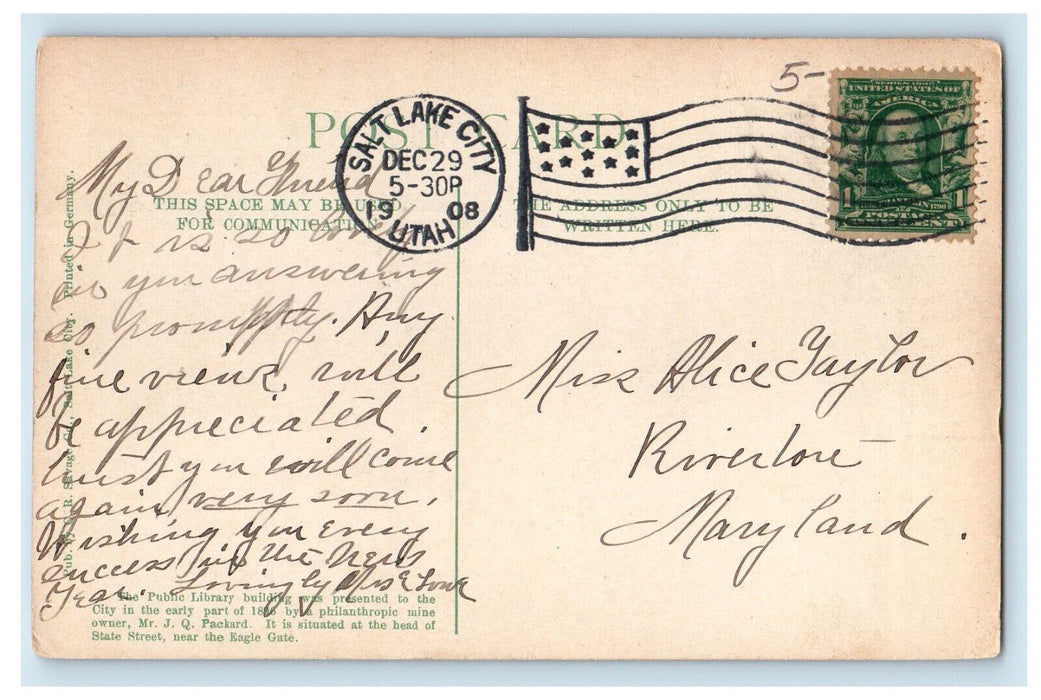 5-
POST CARD
SALT LAKE CITY
DEC 29
5-30P
19 08
UTAH
SERIES 1902
UNITED STATES OF
AMERICA
1 1
FRANKLIN 1790
POSTAGE
THIS SPACE MAY BE USED
FOR COMMUNICATION
THE ADDRESS ONLY TO BE
WRITTEN HERE.
My Dear Friend
It is so
in you answering
so promptly. Any
fine views, will
be appreciated.
trust you will come
again very soon,
Wishing you every
success in the New
Year. Lovingly Mrs E
Miss Alice Taylor
Riverton
Maryland.
The Public Library building was presented to the
City in the early part of by a philanthropic mine
owner, Mr. J. Q. Packard. It is situated at the head of
State Street, near the Eagle Gate.
Pub. by R. Savage Co., Salt Lake City. Printed in Germany.